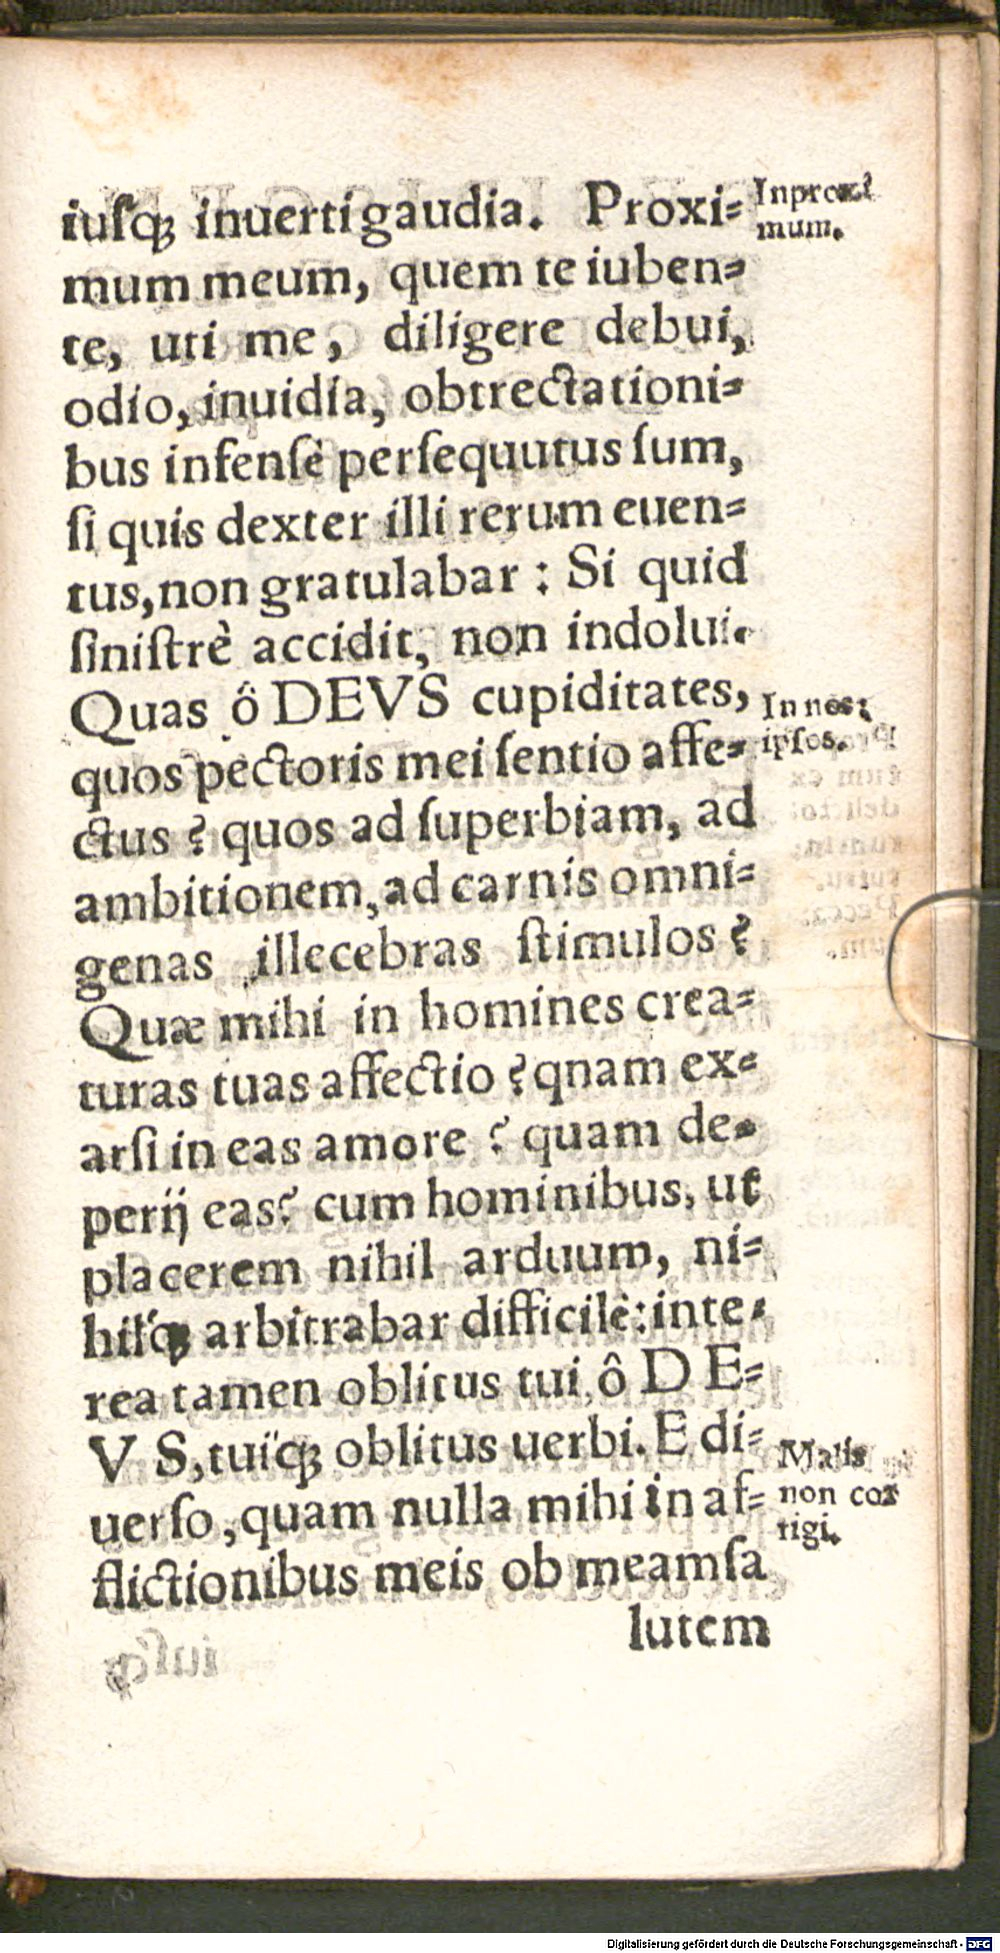 iuſqꝫ inuerti gaudia. Proxi⸗
mum meum, quem te iuben⸗
te, uti me, diligere debui,
odio, inuidia, obtrectationi⸗
bus infenſè perſequutus ſum,
ſi quis dexter illi rerum euen⸗
tus, non gratulabar: Si quid
ſiniſtrè accidit, non indolui.
Quas ô DEVS cupiditates,
quos pectoris mei ſentio affe⸗
ctus? quos ad ſuperbiam, ad
ambitionem, ad carnis omni⸗
genas illecebras ſtimulos?
Quæ mihi in homines crea⸗
turas tuas affectio? qnam ex⸗
arſi in eas amore? quam de⸗
perij eas? cum hominibus, ut
placerem nihil arduum, ni⸗
hilqꝫ arbitrabar difficilè: inte⸗
rea tamen oblitus tui, ô D E⸗
V S, tuiqꝫ oblitus uerbi. E di⸗
uerſo, quam nulla mihi in af⸗
flictionibus meis ob meamſa
lutem
In proxi
mum.
In nos⸗
ipſos.
Malis
non cor
rigi.
Digitalisierung gefördert durch die Deutsche Forschungsgemeinschaft - DFG